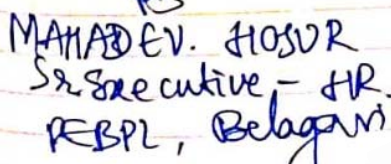 MAHADEV. HOSUR
Sr Executive - HR.
PEBPL, Belagavi